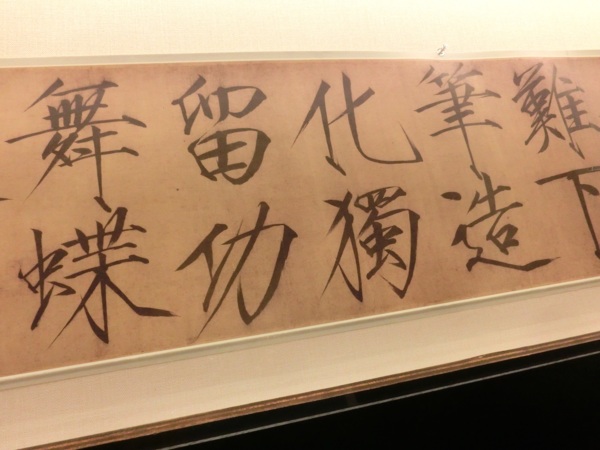 難下
筆造
化獨
留功
舞蝶